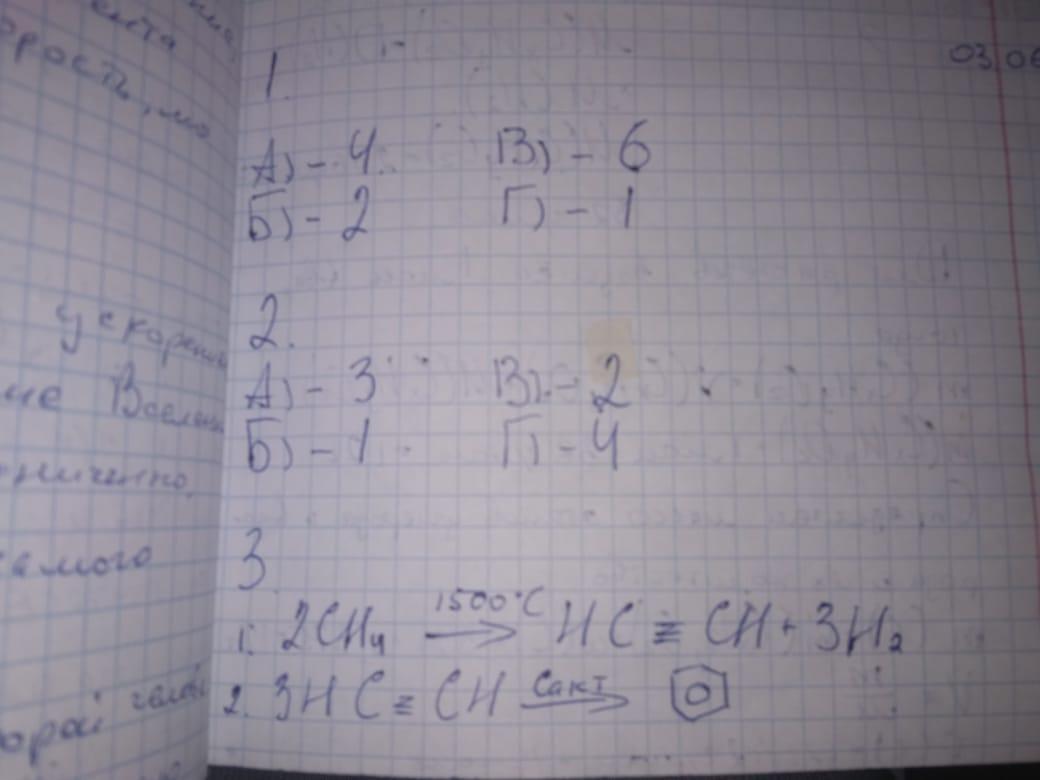 ента
орость, мо
ускорени
ие Вселен
ниченно.
самого
орой
03.06
1.
А) - 4. В) - 6
Б) - 2 Г) - 1
2.
А) - 3 В) - 2
Б) - 1 Г) - 4
3
1. 2CH₄ 1500°C → HC ≡ CH + 3H₂
2. 3HC ≡ CH Cакт →